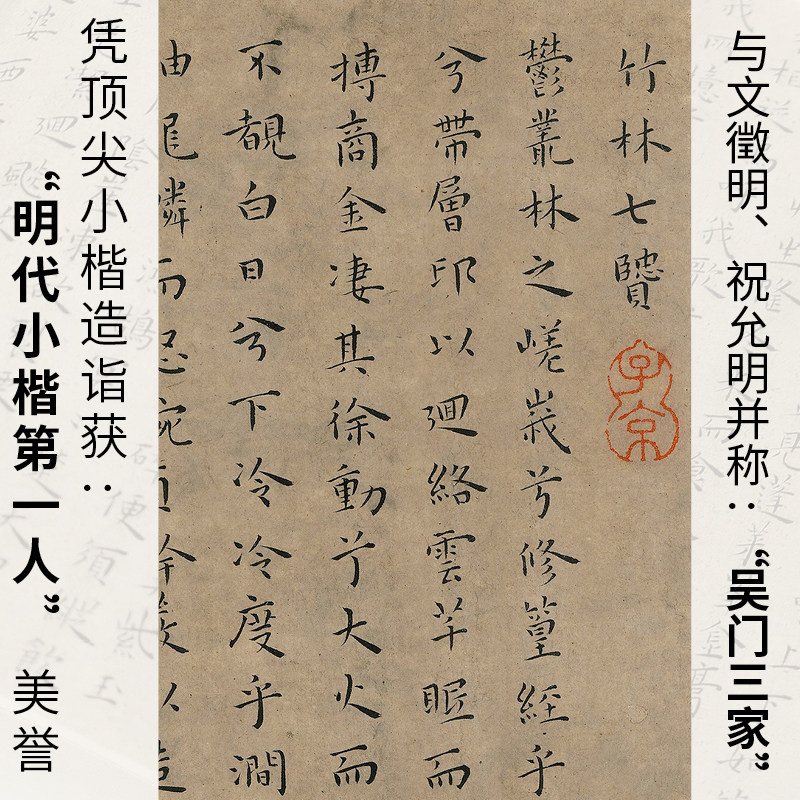 与文徵明、祝允明并称：
“吴门三家”
竹林七贒
子京
鬱叢林之嵯峩兮修篁經乎
兮帶層邱以廻絡雲芊眠而
摶商金凄其徐動兮大火而
不覩白日兮下冷冷度乎澗
凭顶尖小楷造诣获：
“明代小楷第一人”美誉